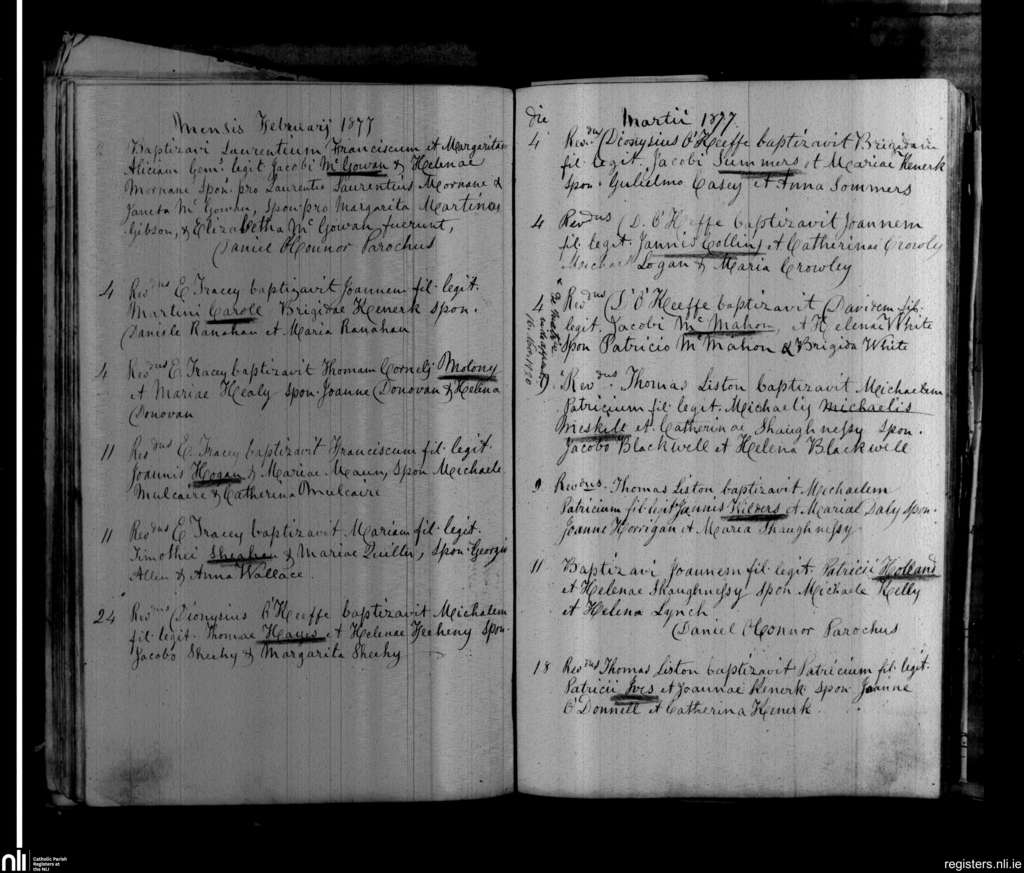 Mensis Februarij 1877
Baptizavi Laurentium Franciscum et Margaritam
Aliciam Gem.s legit Jacobi Mc Gowan & Helenae
Mornane Spon. pro Laurentio Laurentius Mornane &
Janeta Mc Gowan, Spon. pro Margarita Martinus
Gibson, & Elizabetha Mc Gowan fuerunt,
Daniel O'Connor Parochus
4 Revdus E. Tracey baptizavit Joannem fil. legit.
Martini Carole Brigidae Kenerk Spon.
Daniele Ranahan et Maria Ranahan
4 Revdus E. Tracey baptizavit Thomam Cornelj. Molony
et Mariae Healy Spon. Joanne Donovan & Helena
Donovan
11 Revdus E. Tracey baptizavit Franciscum fil. legit.
Joannis Hogan & Mariae Maun, Spon Michaele
Mulcaire & Catherina Mulcaire
11 Revdus E Tracey baptizavit Mariam fil. legit.
Timothei Sheahan & Mariae Quillin, Spon. Georgio
Allen & Anna Wallace.
24 Revdus Dionysius O'Keeffe baptizavit Michalem
fil. legit. Thomae Hayes et Helenae Heheny Spon.
Jacobo Sheehy & Margarita Sheehy
die Martii 1877
4 Rev.dus Dionysius O'Keeffe baptizavit Brigidam
fil. legit. Jacobi Summers et Mariae Kenerk
Spon. Gulielmo Casey et Anna Sommers
4 Revdus D. O'Keeffe baptizavit Joannem
fil. legit. Jannis Collins et Catherinae Crowly
Michael Logan & Maria Crowley
4 Revdus D. O'Keeffe baptizavit Davidem fil.
legit. Jacobi Mc Mahon, et Helenae White
Spon Patricio Mc Mahon & Brigida White
9 Revdus Thomas Liston baptizavit Michaelem
Patricium fil. legit. Michaelis michaelis
Meskile et Catherinae Shaughnessy Spon.
Jacobo Blackwell et Helena Blackwell
9 Revdus. Thomas Liston baptizavit Michaelem
Patricium fil. legit Jannis Kilders et Mariae Daly Spon.
Joanne Horrigan et Maria Shaughnessy.
11 Baptizavi Joannem fil. legit. Patricii Holland
et Helenae Shaughnessy Spon Michaele Kelly
et Helena Lynch
Daniel O'Connor Parochus
18 Revdus Thomas Liston baptizavit Patricium fil. legit.
Patricii Ives et Joannae Kenerk Spon Joanne
O'Donnell et Catherina Kenerk.
nli
Catholic Parish
Registers at
the NLI
registers.nli.ie